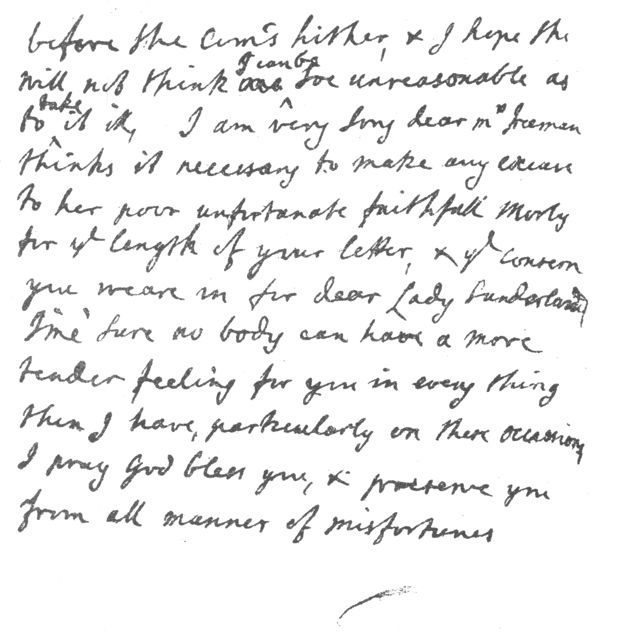 before she com's hither, & I hope she
will not think I can be soe unreasonable as
to take it ill, I am very sory dear mrs Freeman
thinks it necessary to make any excuse
to her poor unfortunate faithfull Morly
for ye length of your letter, & ye consern
you weare in for dear Lady Sunderland
I'me sure no body can have a more
tender feeling for you in every thing
then I have, particularly on these occasions,
I pray God bless you, & preserve you
from all manner of misfortunes